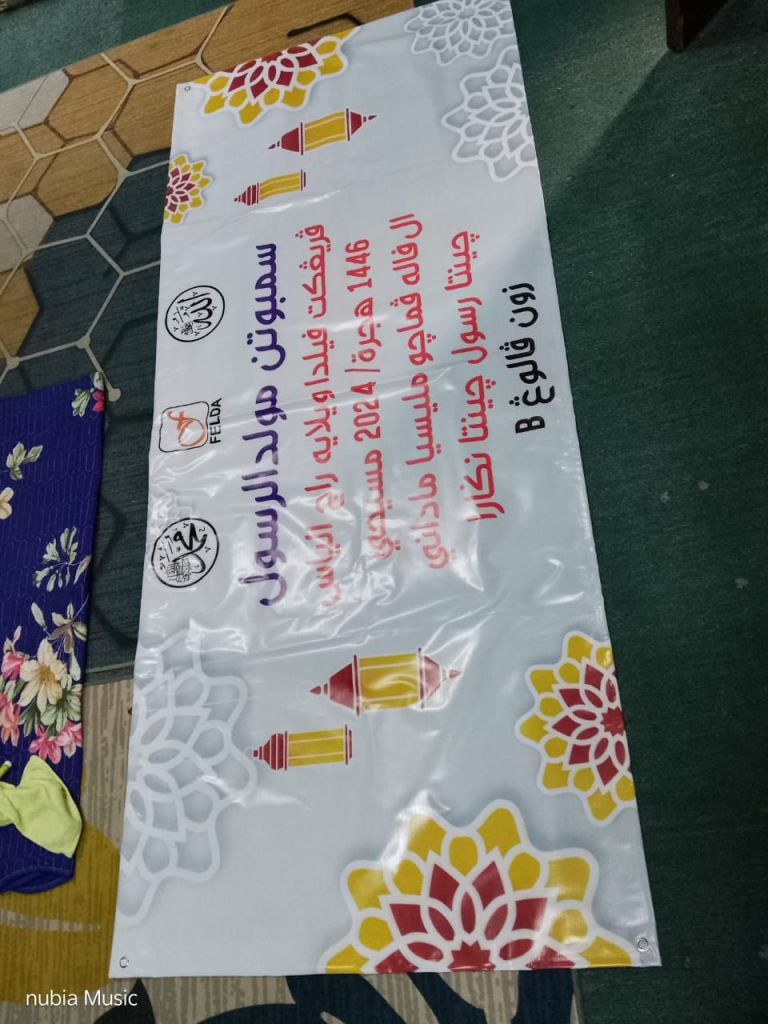 الله
FELDA
محمد
سمبوتن مولدالرسول
ڤريڠكت فيلدا ويلايه راج الياس
1446 هجرة / 2024 مسيحي
ال فاله ڤماچو مليسيا ماداني
چينتا رسول چينتا نݢارا
زون ڤالوڠ B
nubia Music